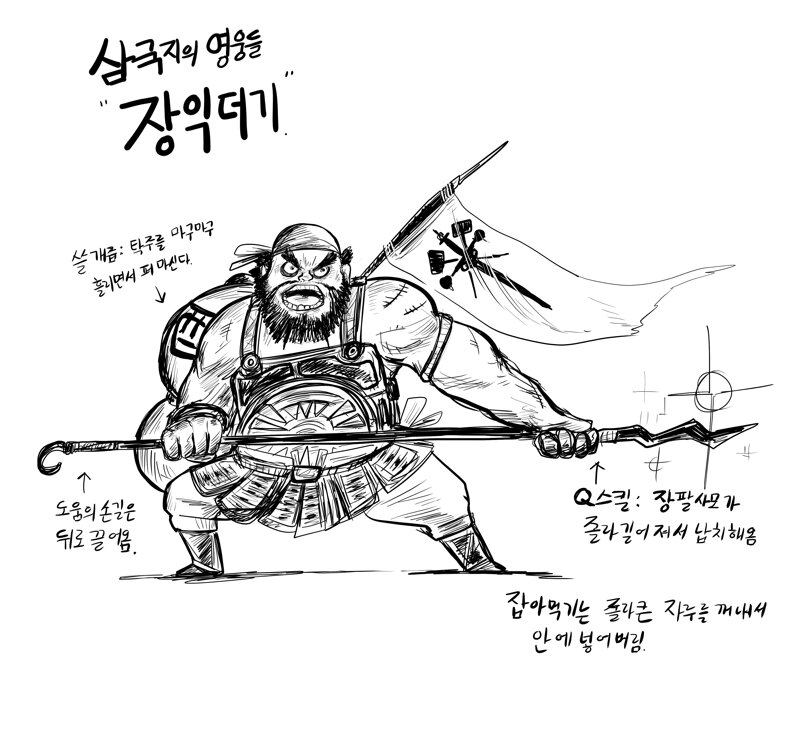 삼국지의 영웅들
"장익더기".
쓸개즙: 탁주를 마구마구
흘리면서 퍼 마신다.
도움의 손길은
뒤로 끌어옴.
Q스킬: 장팔사모가
졸라길어져서 납치해옴
잡아먹기는 졸라큰 자루를 꺼내서
안에 넣어버림.